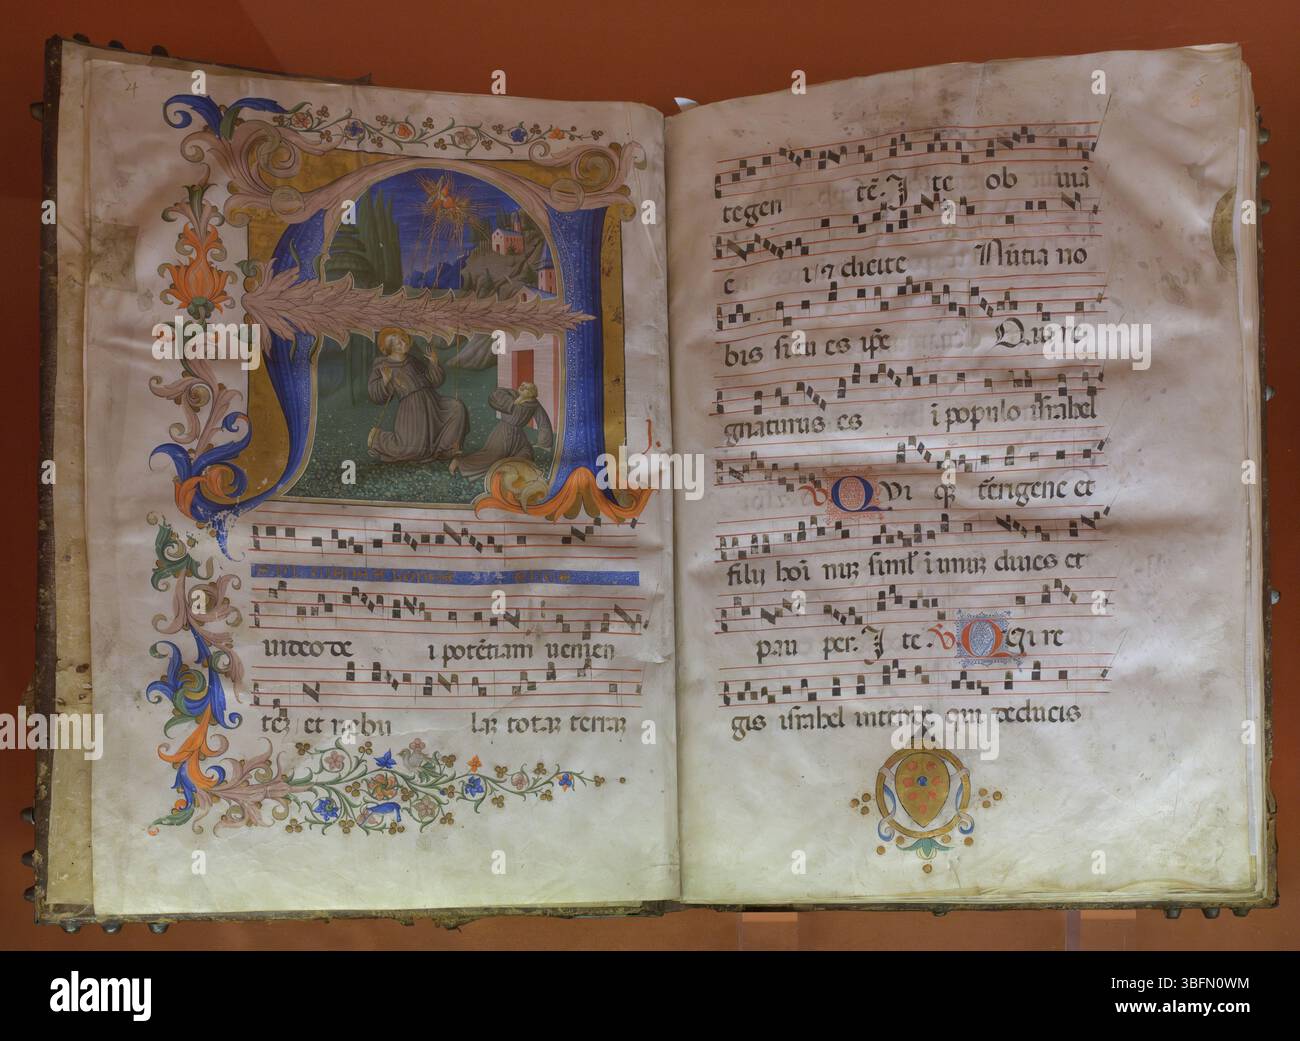 4
A
video de i potētiam uenien
tez et nebu laz totaz terraz
5
tegen tē. I te ob uiaā
e i ⁊ dicite Nūtia no
bis si tu es ip̄e Qui re
gnaturus es i populo israhel
Qui q3 tērigene et
filij hoī nuz simĺ i unuz diues et
pau per. I te Qui re
gis israhel intende qui deducis
alamy
Image ID: 3BFN0WM
www.alamy.com